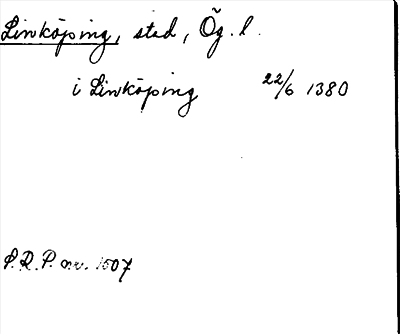 Linköping, stad, Ög. l.
i Linköping 22/6 1380
S.R.P. nr. 1507